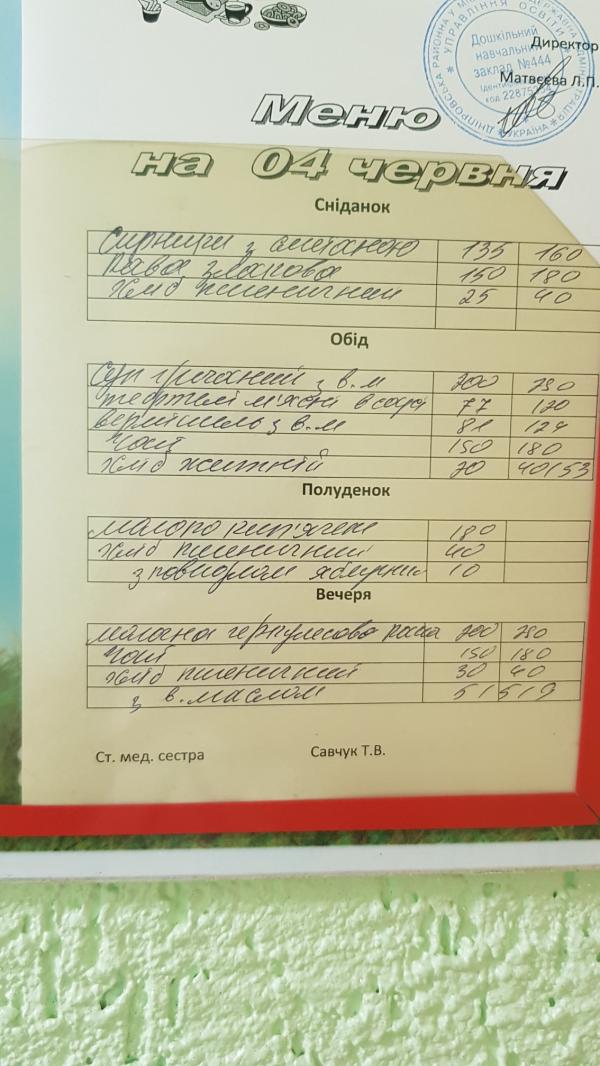 ДНІПРОВСЬКА РАЙОННА У МІСТІ ДЕРЖАВНА АДМІНІСТРАЦІЯ
УПРАВЛІННЯ ОСВІТИ
Дошкільний
навчальний
заклад №444
код
УКРАЇНА
Директор
Матвєєва Л.П.
Меню
на 04 червня
Сніданок
Сирники з сметаною 135 160
Кава злакова 150 180
Хліб пшеничний 25 40
Обід
Суп гречаний з в.м 200 250
тефтелі м'ясні в соусі 77 120
вермішель з в.м 81 124
Чай 150 180
Хліб житній 20 40/53
Полуденок
молоко кип'ячене 180
Хліб пшеничний 40
з повидлом яблучним 10
Вечеря
молочна геркулесова каша 200 250
Чай 150 180
Хліб пшеничний 30 40
з в.маслом 5/5 1/9
Ст. мед. сестра Савчук Т.В.